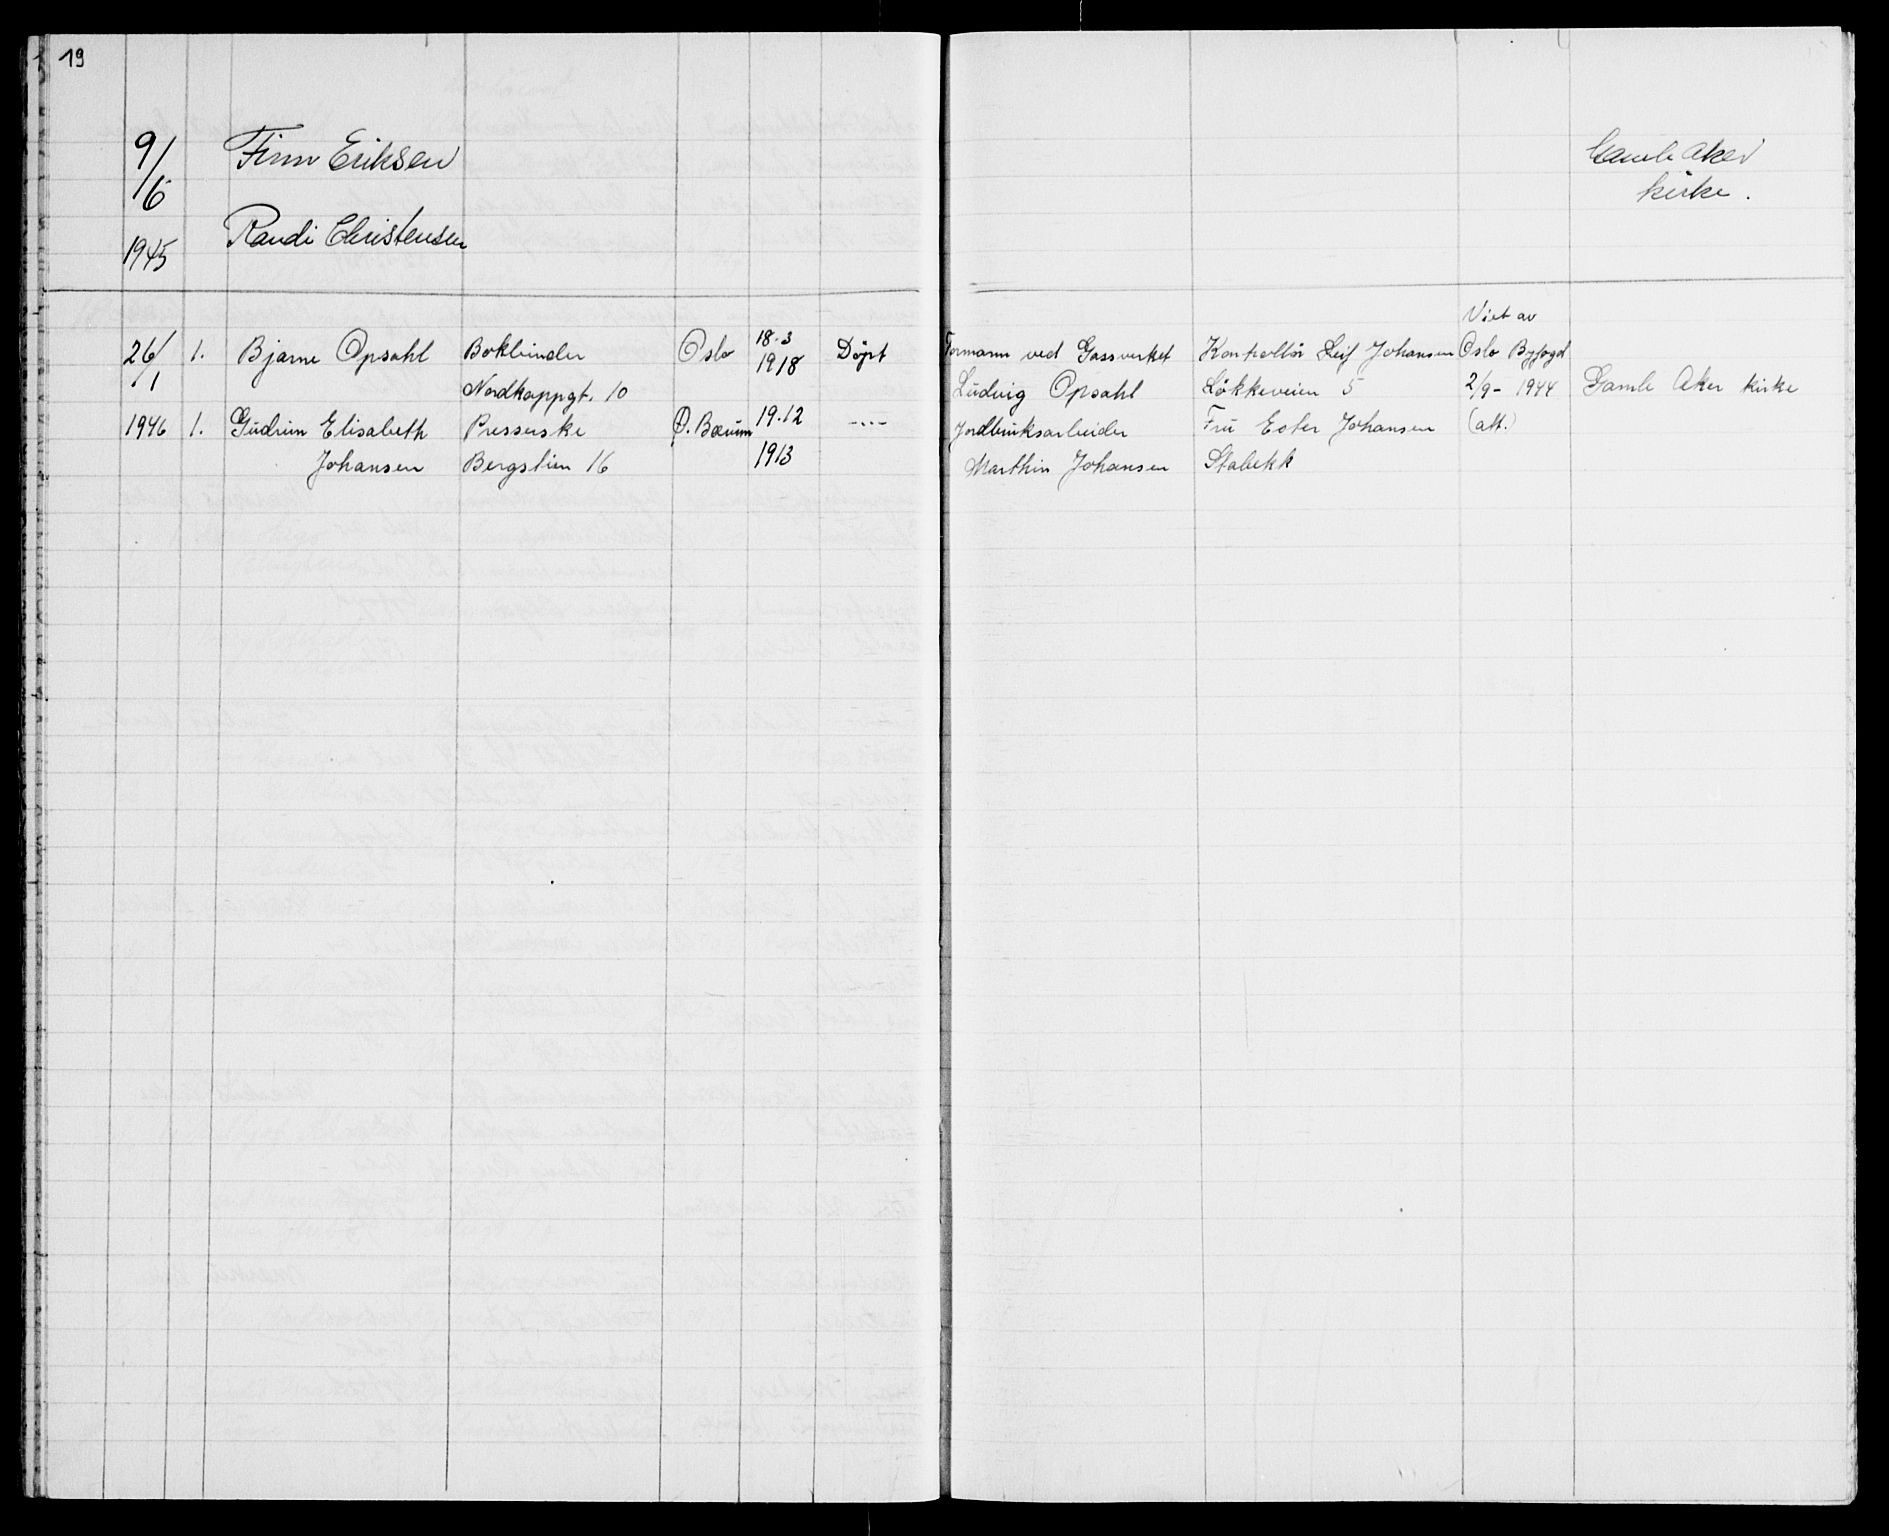 19
9/6 Finn Eriksen Gamle Aker
kirke.
1945 Randi Christensen
Viet av
26/1 1. Bjarne Opsahl Bokbinder Oslo 18-3 1918 Döpt Formann ved Gassverket Kontrollör Leif Johansen Oslo Byfogd
Nordkappgt. 10 Ludvig Opsahl Lökkeveien 5 2/9- 1944 Gamle Aker kirke
1946 1. Gudrun Elisabeth Presserske Ö. Bærum 19.12 -..- Jordbruksarbeider Fru Ester Johansen (att.)
Johansen Bergstien 16 1913 Marthin Johansen Stabekk